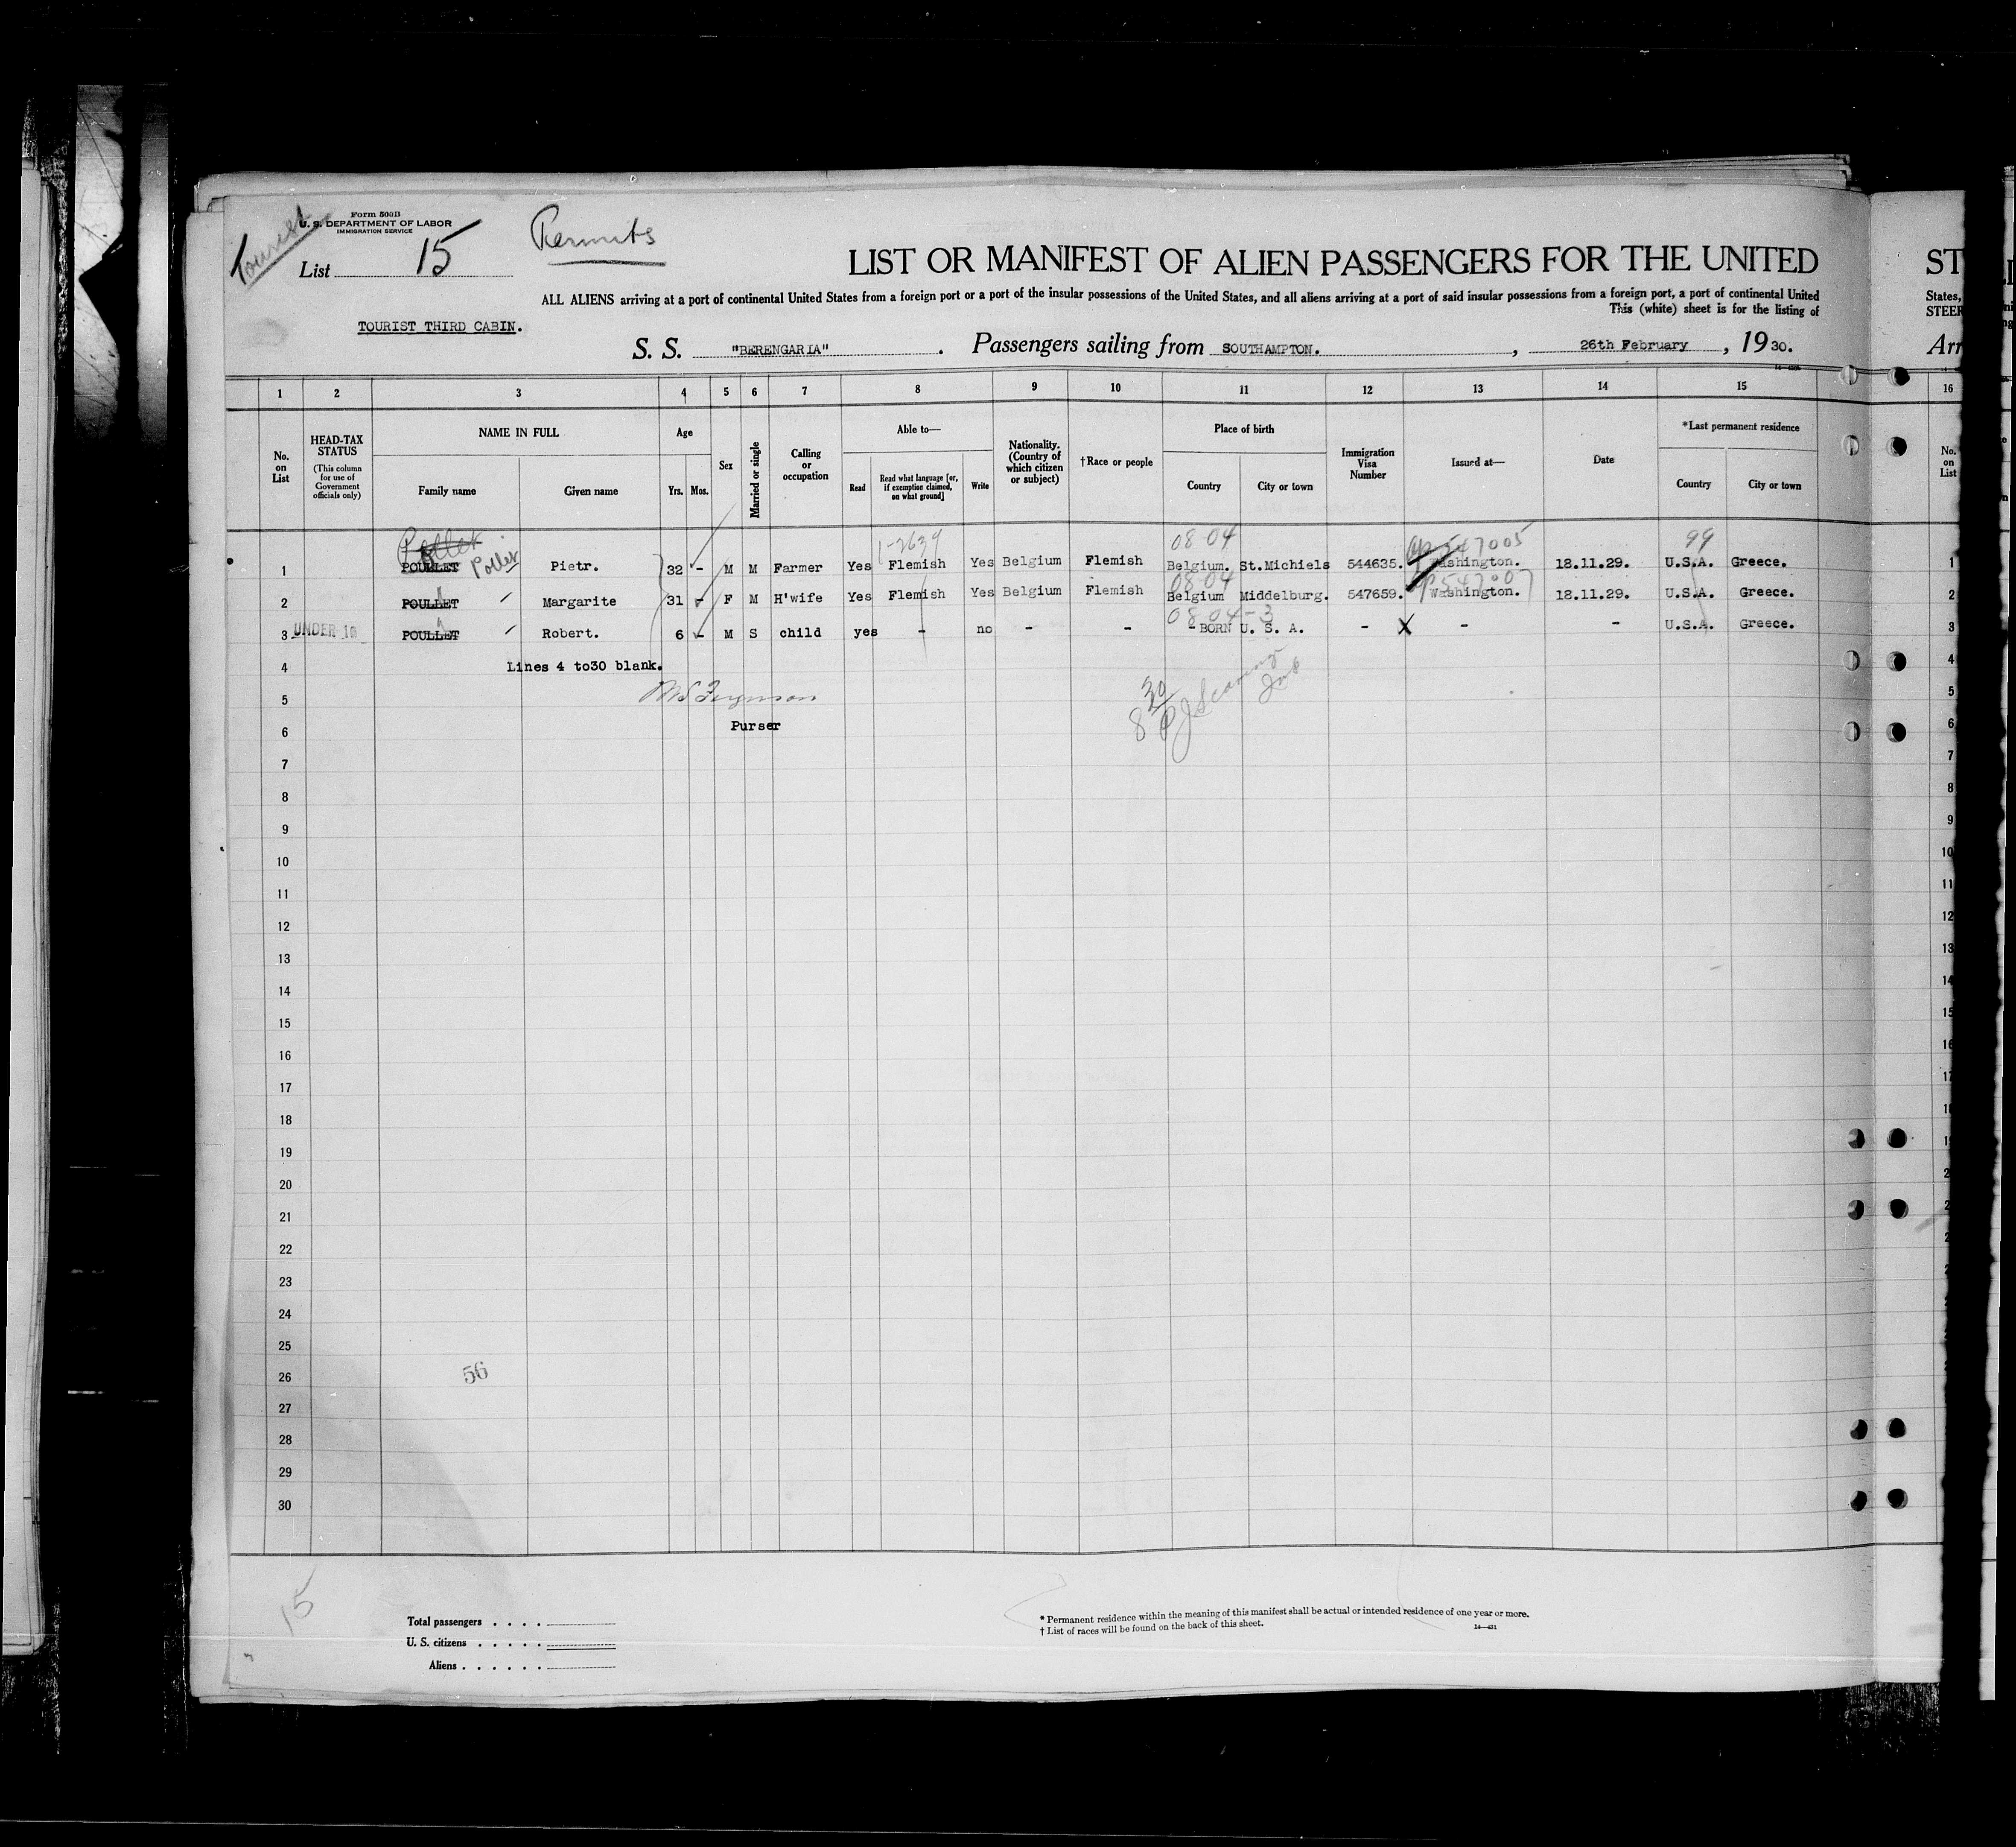 Form 500B
U. S. DEPARTMENT OF LABOR
IMMIGRATION SERVICE
Tourist
List 15
Permits
LIST OR MANIFEST OF ALIEN PASSENGERS FOR THE UNITED
ALL ALIENS arriving at a port of continental United States from a foreign port or a port of the insular possessions of the United States, and all aliens arriving at a port of said insular possessions from a foreign port, a port of continental United
This (white) sheet is for the listing of
TOURIST THIRD CABIN.
S. S. "BERENGARIA". Passengers sailing from SOUTHAMPTON., 26th February, 1930.
ST
States,
STEER
Arr
1 2 3 4 5 6 7 8 9 10 11 12 13 14 15 16
No. on List
HEAD-TAX STATUS (This column for use of Government officials only)
NAME IN FULL
Family name Given name
Age
Yrs. Mos.
Sex
Married or single
Calling or occupation
Able to—
Read Read what language [or, if exemption claimed, on what ground] Write
Nationality. (Country of which citizen or subject)
†Race or people
Place of birth
Country City or town
Immigration Visa Number
Issued at—
Date
*Last permanent residence
Country City or town
No. on List
Pollet 1-2639 08-04 547005 99
1 POULLET Pollet Pietr. 32 - M M Farmer Yes Flemish Yes Belgium Flemish Belgium. St.Michiels 544635. Washington. 18.11.29. U.S.A. Greece. 1
08-04 547007
2 POULLET Margarite 31 - F M H'wife Yes Flemish Yes Belgium Flemish Belgium Middelburg. 547659. Washington. 18.11.29. U.S.A. Greece. 2
08 04-3
3 UNDER 16 POULLET Robert. 6 - M S child yes - no - - - BORN U. S. A. - X - - U.S.A. Greece. 3
4 Lines 4 to30 blank. 4
5 Ferguson 5
6 Purser 8 30 6
7 7
8 8
9 9
10 10
11 11
12 12
13 13
14 14
15 15
16 16
17
18
19
20
21
22
23
24
25
26 56
27
28
29
30
15
Total passengers . . . .
U. S. citizens . . . . .
Aliens . . . . . .
* Permanent residence within the meaning of this manifest shall be actual or intended residence of one year or more.
† List of races will be found on the back of this sheet.
14—431